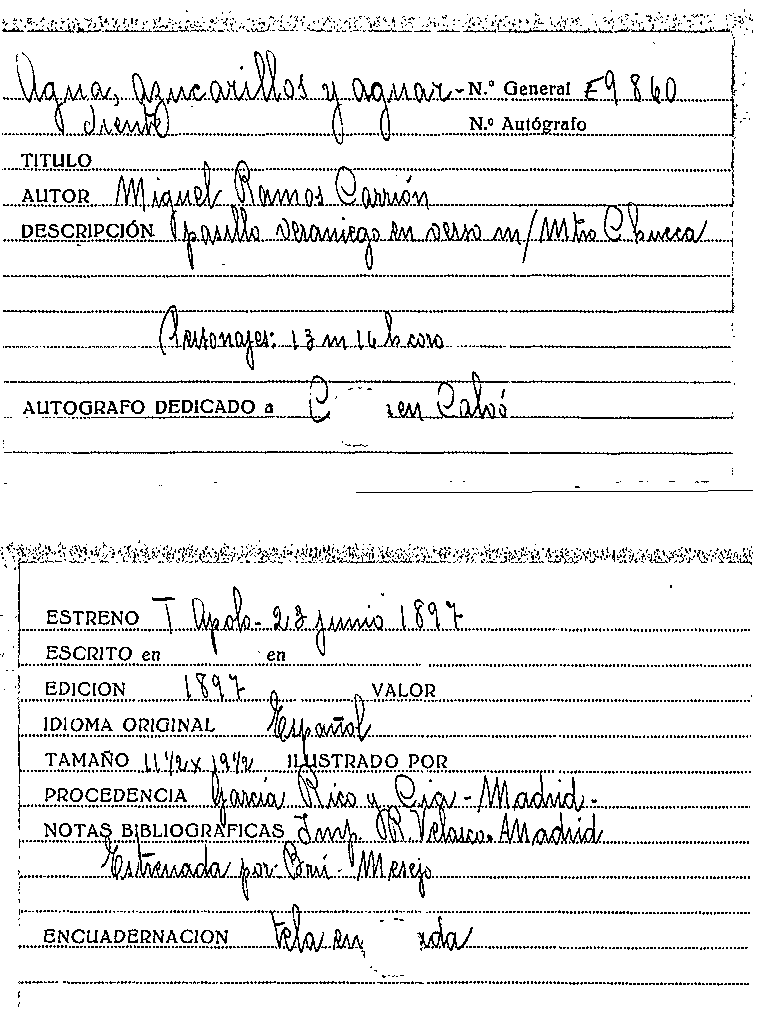 Agua, azucarillos y aguar- N.º General E9 860
diente N.º Autógrafo
TITULO
AUTOR Miguel Ramos Carrión
DESCRIPCIÓN pasillo veraniego en verso m/ Mtro Chueca
Personajes: 13 m 16 h coro
AUTOGRAFO DEDICADO a C en Calvó
ESTRENO T Apolo - 23 junio 1897
ESCRITO en en
EDICION 1897 VALOR
IDIOMA ORIGINAL Español
TAMAÑO 11 1/2 x 19 1/2 ILUSTRADO POR
PROCEDENCIA García Rico y Cia - Madrid -
NOTAS BIBLIOGRAFICAS Imp. R. Velasco. Madrid
Estrenada por - Brú - Mesejo
ENCUADERNACION tela en